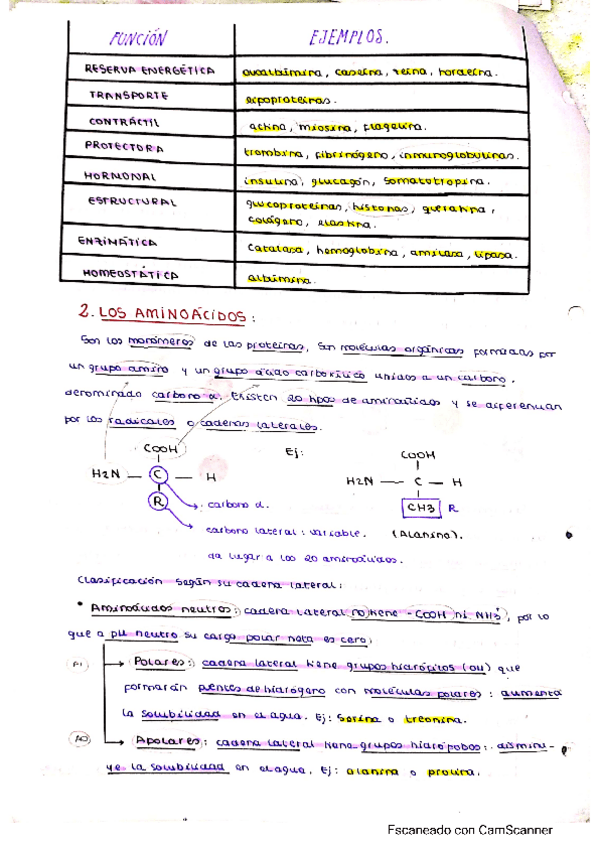 FUNCIÓN EJEMPLOS.
RESERVA ENERGÉTICA ovoalbúmina, caseína, zeína, hordeína.
TRANSPORTE lipoproteínas.
CONTRÁCTIL actina, miosina, flagelina.
PROTECTORA trombina, fibrinógeno, inmunoglobulinas.
HORMONAL insulina, glucagón, somatotropina.
ESTRUCTURAL glucoproteínas, histonas, queratina,
colágeno, elastina.
ENZIMÁTICA catalasa, hemoglobina, amilasa, lipasa.
HOMEOSTÁTICA albúmina.
2. LOS AMINOÁCIDOS:
Son los monómeros de las proteínas, son moléculas orgánicas formadas por
un grupo amino y un grupo ácido carboxílico unidos a un carbono,
denominado carbono α. Existen 20 tipos de aminoácidos y se diferencian
por los radicales o cadenas laterales.
COOH Ej: COOH
H2N — C — H H2N — C — H
R carbono α. CH3 R
carbono lateral: variable. (Alanina).
da lugar a los 20 aminoácidos.
Clasificación según su cadena lateral:
• Aminoácidos neutros: cadena lateral no tiene -COOH ni NH3, por lo
que a pH neutro su carga polar neta es cero:
Polares: cadena lateral tiene grupos hidrófilos (OH) que
formarán puentes de hidrógeno con moléculas polares: aumenta
la solubilidad en el agua. Ej: serina o treonina.
Apolares: cadena lateral tiene grupos hidrófobos: disminu-
ye la solubilidad en el agua. Ej: alanina o prolina.
Escaneado con CamScanner